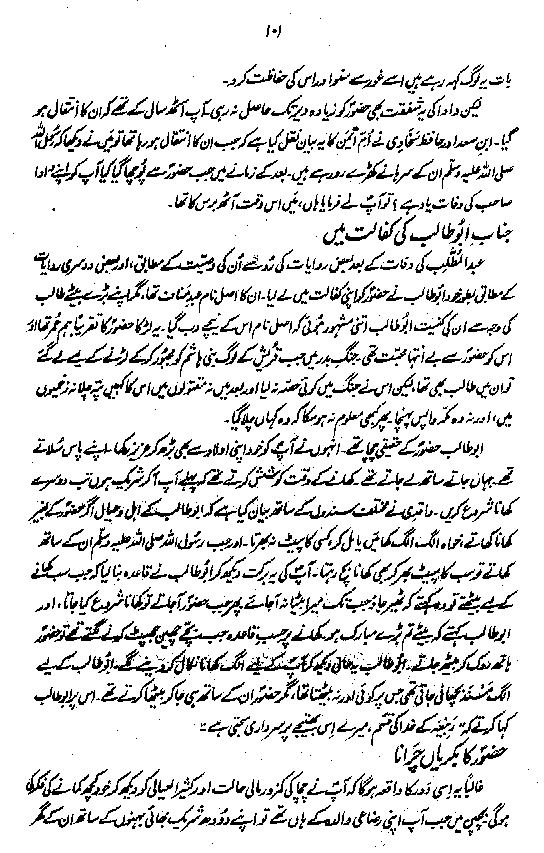 ۱۰۱
بات یہ لوگ کہہ رہے ہیں اسے غور سے سنو اور اس کی حفاظت کرو۔
لیکن دادا کی یہ شفقت بھی حضورؐ کو زیادہ دیر تک حاصل نہ رہی۔ آپ آٹھ سال کے تھے کہ ان کا انتقال ہو
گیا۔ ابن سعد اور حافظ سخاوی نے اُمِّ ایمن کا یہ بیان نقل کیا ہے کہ جب ان کا انتقال ہو رہا تھا تو میں نے دیکھا کہ رسول اللہ
صلی اللہ علیہ وسلم ان کے سرہانے کھڑے رو رہے ہیں۔ بعد کے زمانے میں جب حضورؐ سے پوچھا گیا کیا آپ کو اپنے دادا
صاحب کی وفات یاد ہے؟ تو آپ نے فرمایا ہاں، میں اس وقت آٹھ برس کا تھا۔
جناب ابو طالب کی کفالت میں
عبدالمطلب کی وفات کے بعد بعض روایات کی رُو سے اُن کی وصیت کے مطابق، اور بعض دوسری روایات
کے مطابق بطورِ خود ابو طالب نے حضورؐ کو اپنی کفالت میں لے لیا۔ ان کا اصل نام عبد مناف تھا، مگر اپنے بڑے بیٹے طالب
کی وجہ سے ان کی کنیت ابو طالب اتنی مشہور ہوئی کہ اصل نام اس کے نیچے دب گیا۔ یہ لڑکا حضورؐ کا تقریباً ہم عمر تھا اور
اس کو حضورؐ سے بے انتہا محبت تھی۔ جنگِ بدر میں جب قریش کے لوگ بنی ہاشم کو مجبور کر کے لڑنے کے لیے لے گئے
تو ان میں طالب بھی تھا، لیکن اس نے جنگ میں کوئی حصہ نہ لیا اور بعد میں نہ مقتولوں میں اس کا کہیں پتہ چلا نہ زخمیوں
میں، اور نہ وہ مکہ واپس پہنچا۔ پھر کبھی معلوم نہ ہو سکا کہ وہ کہاں چلا گیا۔
ابو طالب حضورؐ کے حقیقی چچا تھے۔ انہوں نے آپؐ کو خود اپنی اولاد سے بھی بڑھ کر عزیز رکھا۔ اپنے پاس سُلاتے
تھے۔ جہاں جاتے ساتھ لے جاتے تھے۔ کھانے کے وقت کوشش کرتے تھے کہ پہلے آپ آ کر شریک ہوں تب دوسرے
کھانا شروع کریں۔ واقدی نے مختلف سندوں کے ساتھ بیان کیا ہے کہ ابو طالب کے اہل و عیال اگر حضورؐ کے بغیر
کھانا کھاتے، خواہ الگ الگ کھائیں یا مل کر کسی کا پیٹ نہ بھرتا۔ اور جب رسول اللہ صلی اللہ علیہ وسلم ان کے ساتھ
کھاتے تو سب کا پیٹ بھر کر بھی کھانا بچ رہتا۔ آپؐ کی یہ برکت دیکھ کر ابو طالب نے قاعدہ بنا لیا کہ جب سب کھانے
کے لیے بیٹھتے تو وہ کہتے کہ ٹھیر جاؤ جب تک میرا بیٹا نہ آ جائے۔ پھر جب حضورؐ آ جاتے تو کھانا شروع کیا جاتا، اور
ابو طالب کہتے کہ بیٹے تم بڑے مبارک ہو۔ کھانے پر حسب قاعدہ جب بچے چھین جھپٹ کرنے لگتے تھے تو حضورؐ
ہاتھ روک کر بیٹھ جاتے۔ ابو طالب یہ حالت دیکھ کر آپؐ کے لیے الگ کھانا نکال کر دینے لگے۔ ابو طالب کے لیے
الگ مسند بچھائی جاتی تھی جس پر کوئی اور نہ بیٹھتا تھا، مگر حضورؐ ان کے ساتھ ہی جا کر بیٹھا کرتے تھے۔ اس پر ابو طالب
کہا کرتے کہ "ربیعہ کے خدا کی قسم، میرے اِس بھتیجے پر سرداری سجتی ہے۔"
حضورؐ کا بکریاں چرانا
غالباً یہ اِسی دَور کا واقعہ ہوگا کہ آپؐ نے چچا کی کمزور مالی حالت اور کثیر العیالی کو دیکھ کر خود کچھ کمانے کی فکر کی
ہوگی۔ بچپن میں جب آپ اپنی رضاعی والدہ کے ہاں تھے تو اپنے دودھ شریک بھائی بہنوں کے ساتھ ان کے گھر